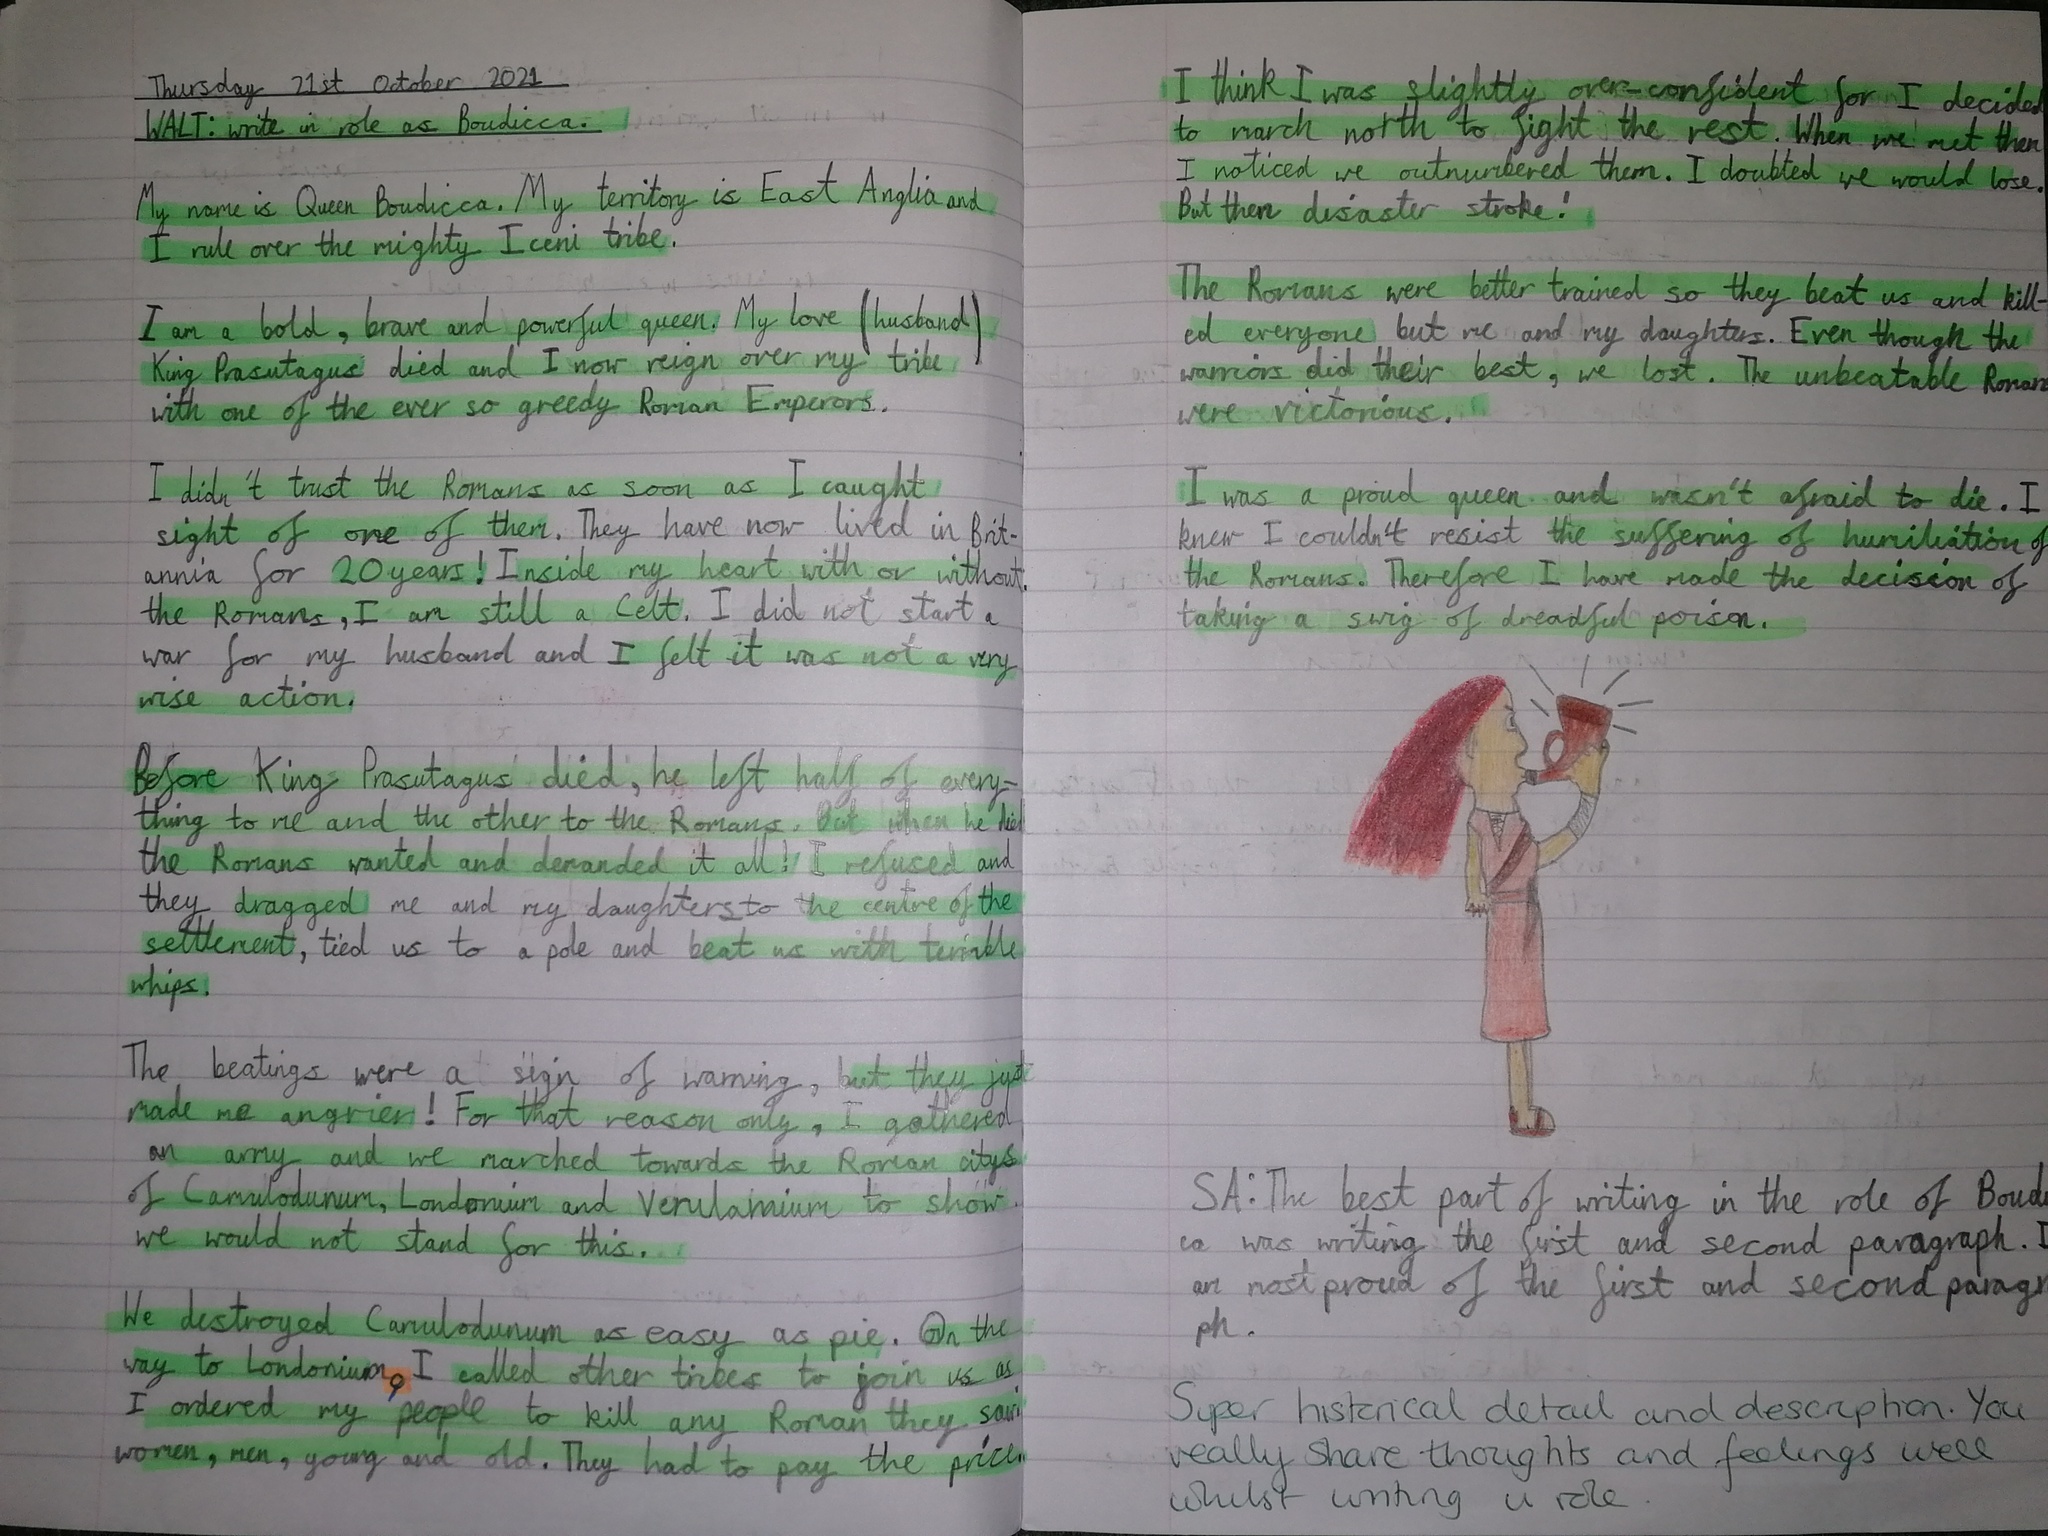 Thursday 21st October 2021
WALT: write in role as Boudicca.
My name is Queen Boudicca. My territory is East Anglia and
I rule over the mighty Iceni tribe.
I am a bold, brave and powerful queen. My love (husband)
King Prasutagus died and I now reign over my tribe
with one of the ever so greedy Roman Emperors.
I didn't trust the Romans as soon as I caught
sight of one of them. They have now lived in Brit-
annia for 20 years! Inside my heart with or without
the Romans, I am still a Celt. I did not start a
war for my husband and I felt it was not a very
wise action.
Before King Prasutagus died, he left half of every-
thing to me and the other to the Romans. But when he died
the Romans wanted and demanded it all! I refused and
they dragged me and my daughters to the centre of the
settlement, tied us to a pole and beat us with terrible
whips.
The beatings were a sign of warning, but they just
made me angrier! For that reason only, I gathered
an army and we marched towards the Roman citys
of Camulodunum, Londonium and Verulamium to show
we would not stand for this.
We destroyed Camulodunum as easy as pie. On the
way to Londonium, I called other tribes to join us as
I ordered my people to kill any Roman they saw
women, men, young and old. They had to pay the price.
I think I was slightly over-confident for I decided
to march north to fight the rest. When we met then
I noticed we outnumbered them. I doubted we would lose.
But then disaster stroke!
The Romans were better trained so they beat us and kill-
ed everyone but me and my daughters. Even though the
warriors did their best, we lost. The unbeatable Romans
were victorious.
I was a proud queen and wasn't afraid to die. I
knew I couldn't resist the suffering of humiliation of
the Romans. Therefore I have made the decision of
taking a swig of dreadful poison.
SA: The best part of writing in the role of Boudi
ca was writing the first and second paragraph. I
am most proud of the first and second paragr
ph.
Super historical detail and description. You
really share thoughts and feelings well
whilst writing in role.